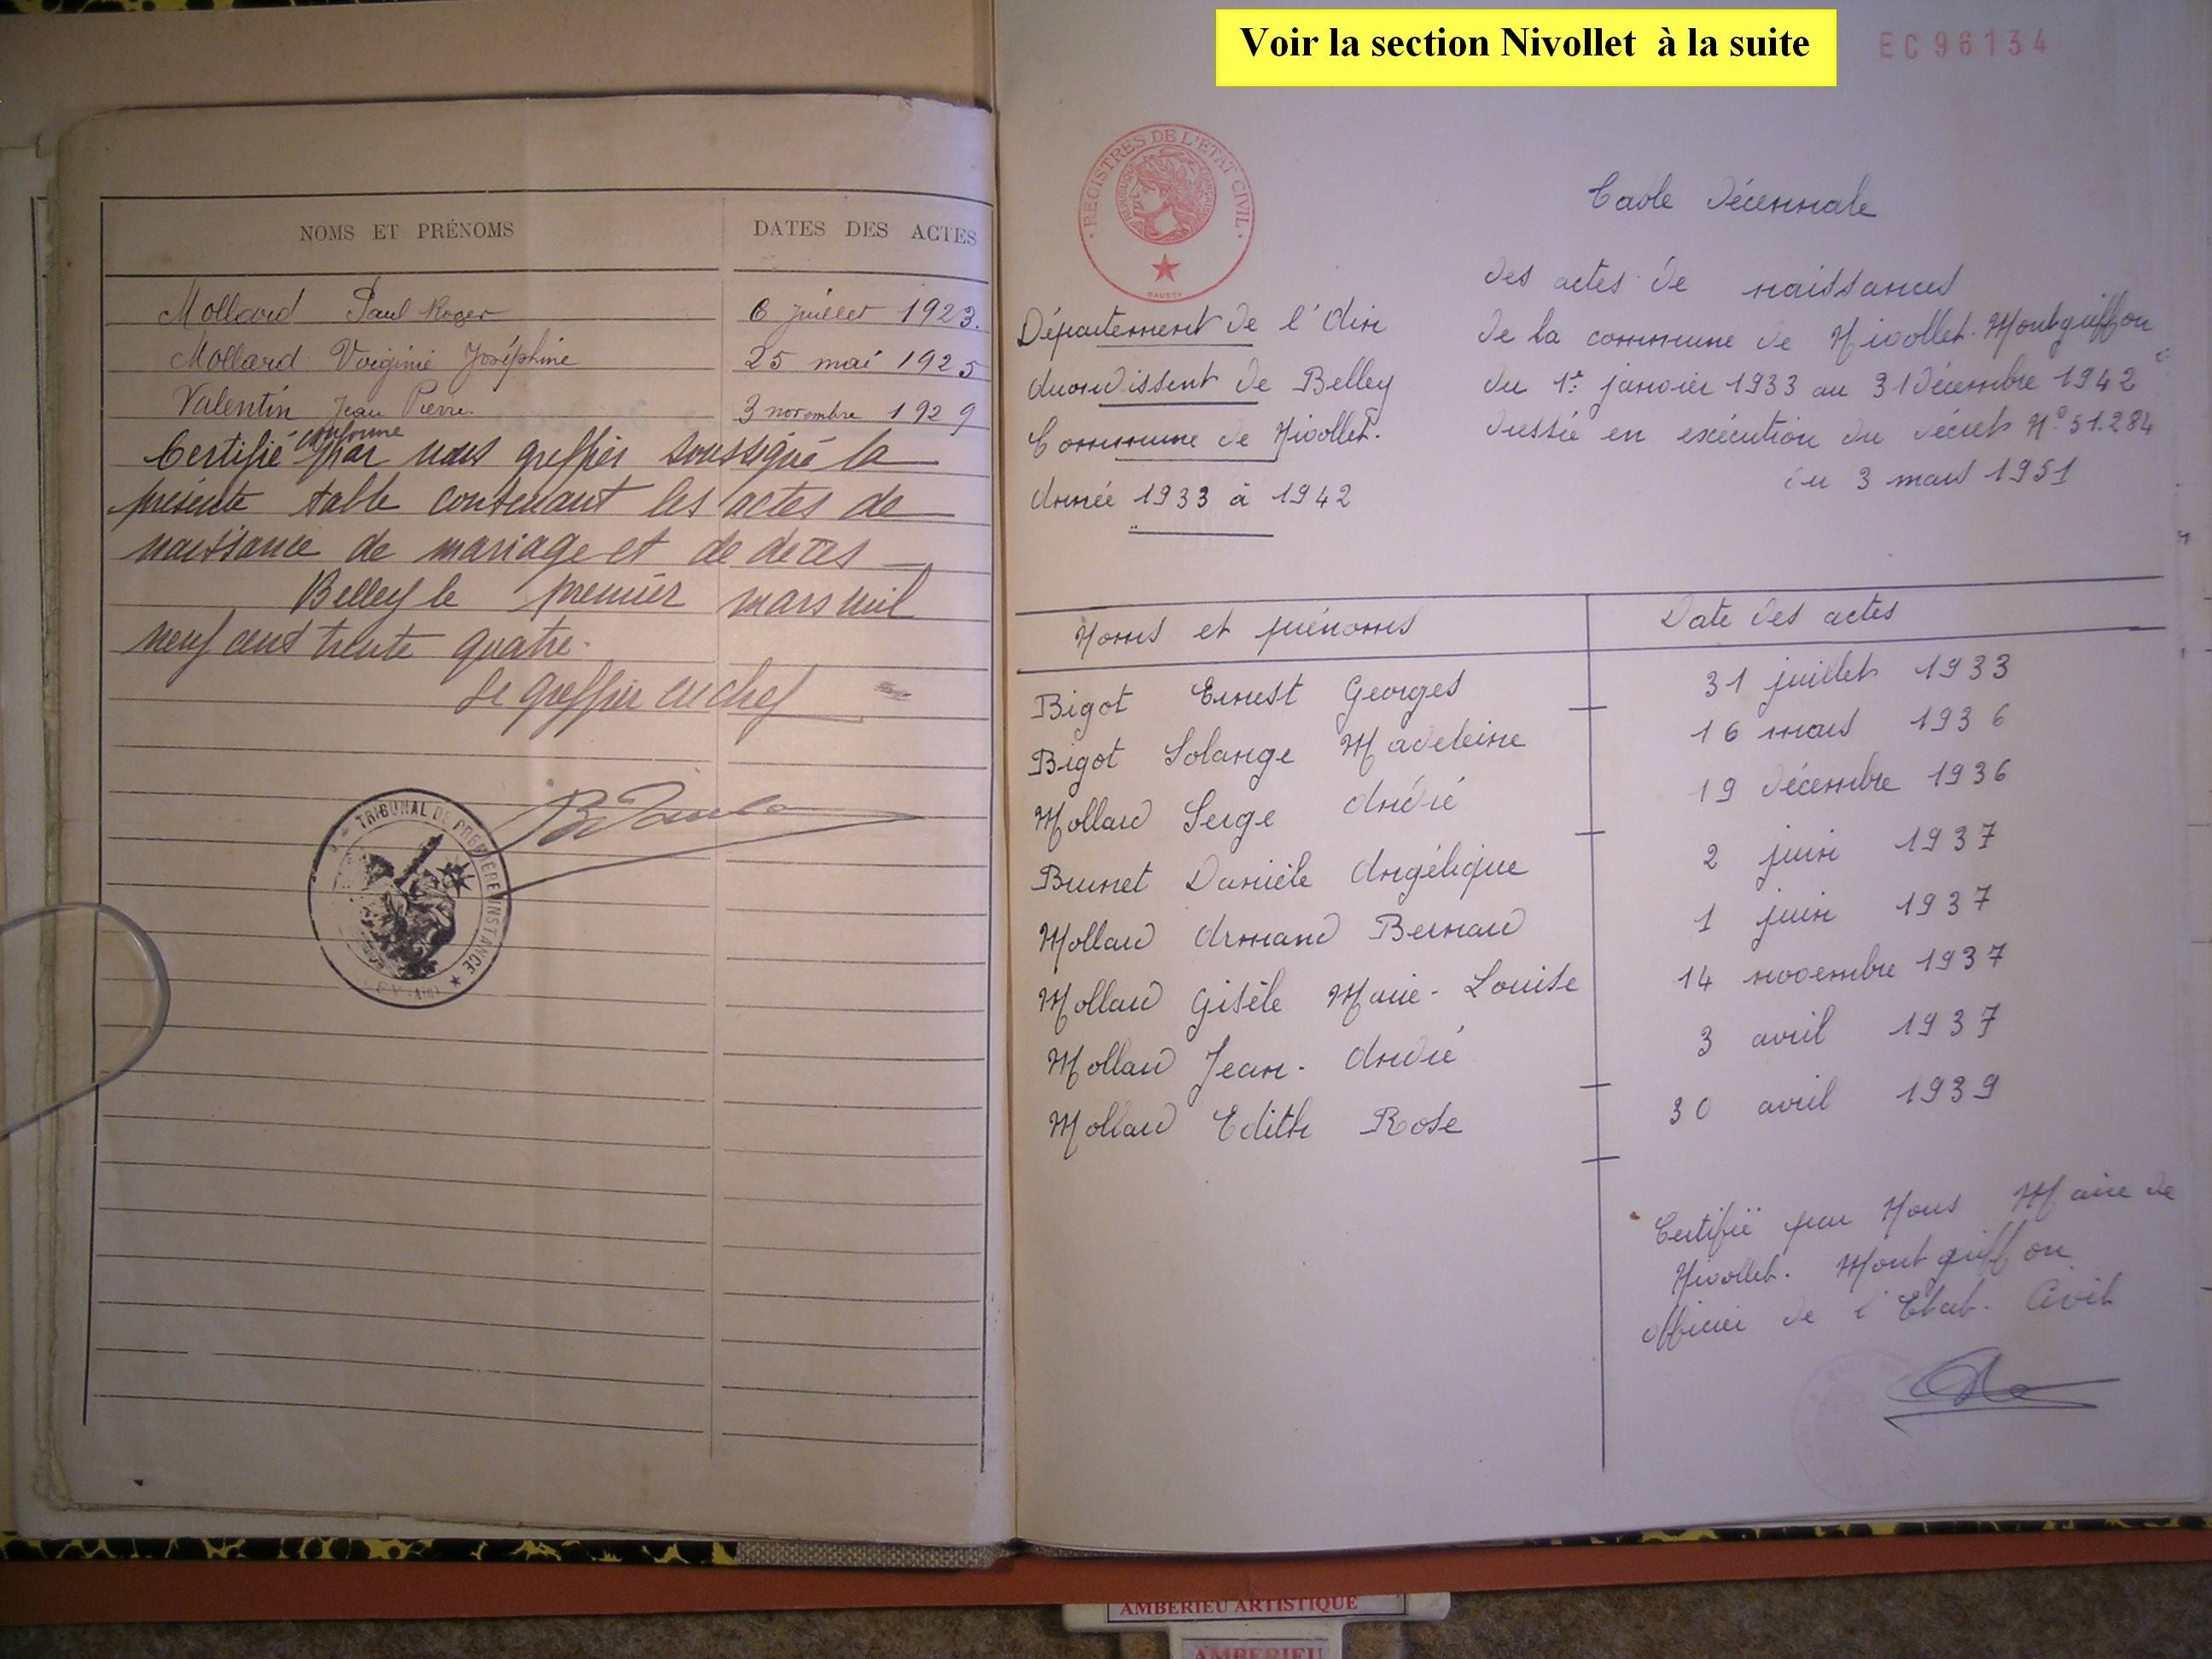 Voir la section Nivollet à la suite
EC96134
NOMS ET PRÉNOMS DATES DES ACTES
Mollard Paul Roger 6 juillet 1923.
Mollard Virginie Joséphine 25 mai 1925
Valentin Jean Pierre. 3 novembre 1929
conforme
Certifié par nous greffier soussigné la
présente table contenant les actes de
naissance de mariage et de décès
Belley le premier mars mil
neuf cent trente quatre.
Le greffier en chef
TRIBUNAL DE PREMIÈRE INSTANCE
(Ain)
REGISTRES DE L'ETAT CIVIL
Table Décennale
des actes de naissances
de la commune de Nivollet-Montgriffon
du 1er janvier 1933 au 31 Décembre 1942
dressée en exécution du décret N° 51.284
du 3 mars 1951
Département de l'Ain
Arrondissent de Belley
Commune de Nivollet.
Année 1933 à 1942
Noms et prénoms Date des actes
Bigot Ernest Georges 31 juillet 1933
Bigot Solange Madeleine 16 mars 1936
Mollard Serge André 19 décembre 1936
Brunet Danièle Angélique 2 juin 1937
Mollard Armand Bernard 1 juin 1937
Mollard Gisèle Marie-Louise 14 novembre 1937
Mollard Jean-André 3 avril 1937
Mollard Edith Rose 30 avril 1939
Certifié par Nous Maire de
Nivollet-Montgriffon
officier de l'Etat-Civil
AMBERIEU ARTISTIQUE
AMBERIEU